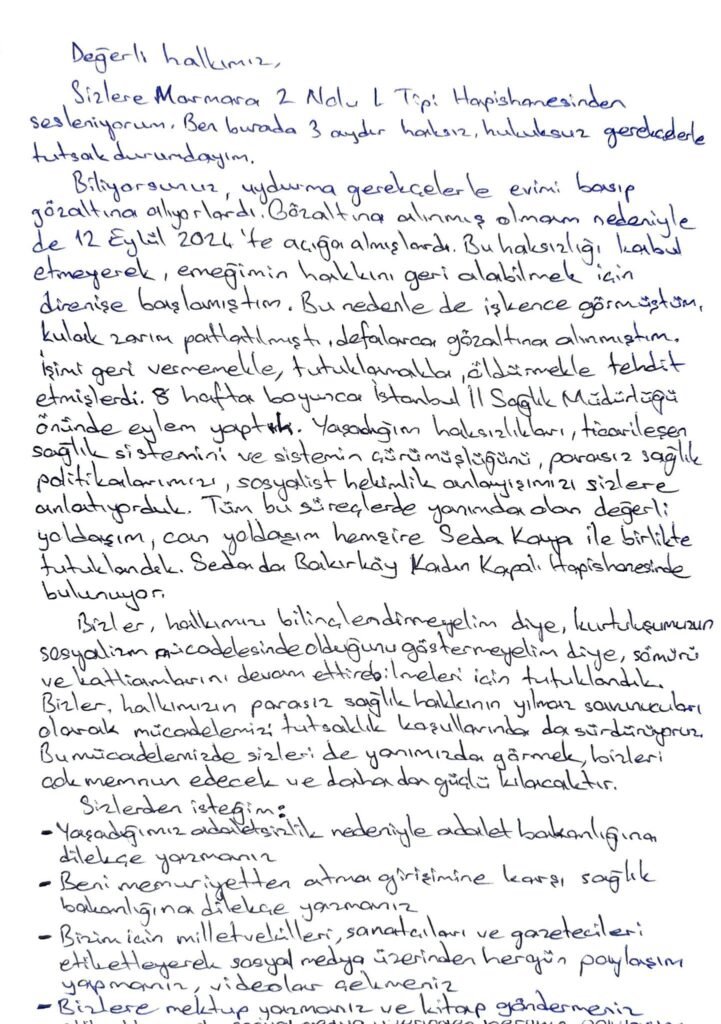 Değerli halkımız,
Sizlere Marmara 2 Nolu L Tipi Hapishanesinden
sesleniyorum. Ben burada 3 aydır haksız, hukuksuz gerekçelerle
tutsak durumdayım.
Biliyorsunuz, uydurma gerekçelerle evimi basıp
gözaltına alıyorlardı. Gözaltına alınmış olmam nedeniyle
de 12 Eylül 2024'te açığa almışlardı. Bu haksızlığı kabul
etmeyerek, emeğimin hakkını geri alabilmek için
direnişe başlamıştım. Bu nedenle de işkence görmüştüm,
kulak zarım patlatılmıştı, defalarca gözaltına alınmıştım.
İşimi geri vermemekle, tutuklamakla, öldürmekle tehdit
etmişlerdi. 8 hafta boyunca İstanbul İl Sağlık Müdürlüğü
önünde eylem yaptık. Yaşadığım haksızlıkları, ticarileşen
sağlık sistemini ve sistemin çürümüşlüğünü, parasız sağlık
politikalarımızı, sosyalist hekimlik anlayışımızı sizlere
anlatıyorduk. Tüm bu süreçlerde yanımda olan değerli
yoldaşım, can yoldaşım hemşire Seda Kaya ile birlikte
tutuklandık. Seda da Bakırköy Kadın Kapalı Hapishanesinde
bulunuyor.
Bizler, halkımızı bilinçlendirmeyelim diye, kurtuluşumuzun
sosyalizm mücadelesinde olduğunu göstermeyelim diye, sömürü
ve katliamlarını devam ettirebilmeleri için tutuklandık.
Bizler, halkımızın parasız sağlık hakkının yılmaz savunucuları
olarak mücadelemizi tutsaklık koşullarında da sürdürüyoruz.
Bu mücadelemizde sizleri de yanımızda görmek, bizleri
çok memnun edecek ve daha da güçlü kılacaktır.
Sizlerden isteğim:
- Yaşadığımız adaletsizlik nedeniyle adalet bakanlığına
dilekçe yazmanız
- Beni memuriyetten atma girişimine karşı sağlık
bakanlığına dilekçe yazmanız
- Bizim için milletvekilleri, sanatçıları ve gazetecileri
etiketleyerek sosyal medya üzerinden hergün paylaşım
yapmanız, videolar çekmeniz
- Bizlere mektup yazmanız ve kitap göndermeniz